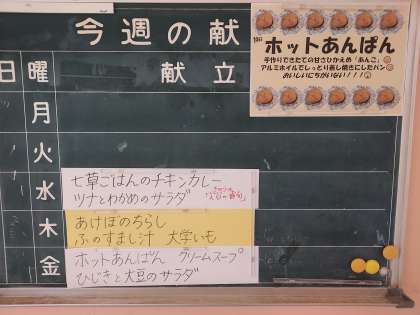 今週の献
日 曜 献立
月
火
水
木
金
ホットあんぱん
手作りできたての甘さひかえめ「あんこ」
アルミホイルでしっとり蒸し焼きにしたパン
おいしいにちがいない!!!
七草ごはんのチキンカレー
ツナとわかめのサラダ
あけぼのちらし
ふのすまし汁 大学いも
ホットあんぱん クリームスープ
ひじきと大豆のサラダ